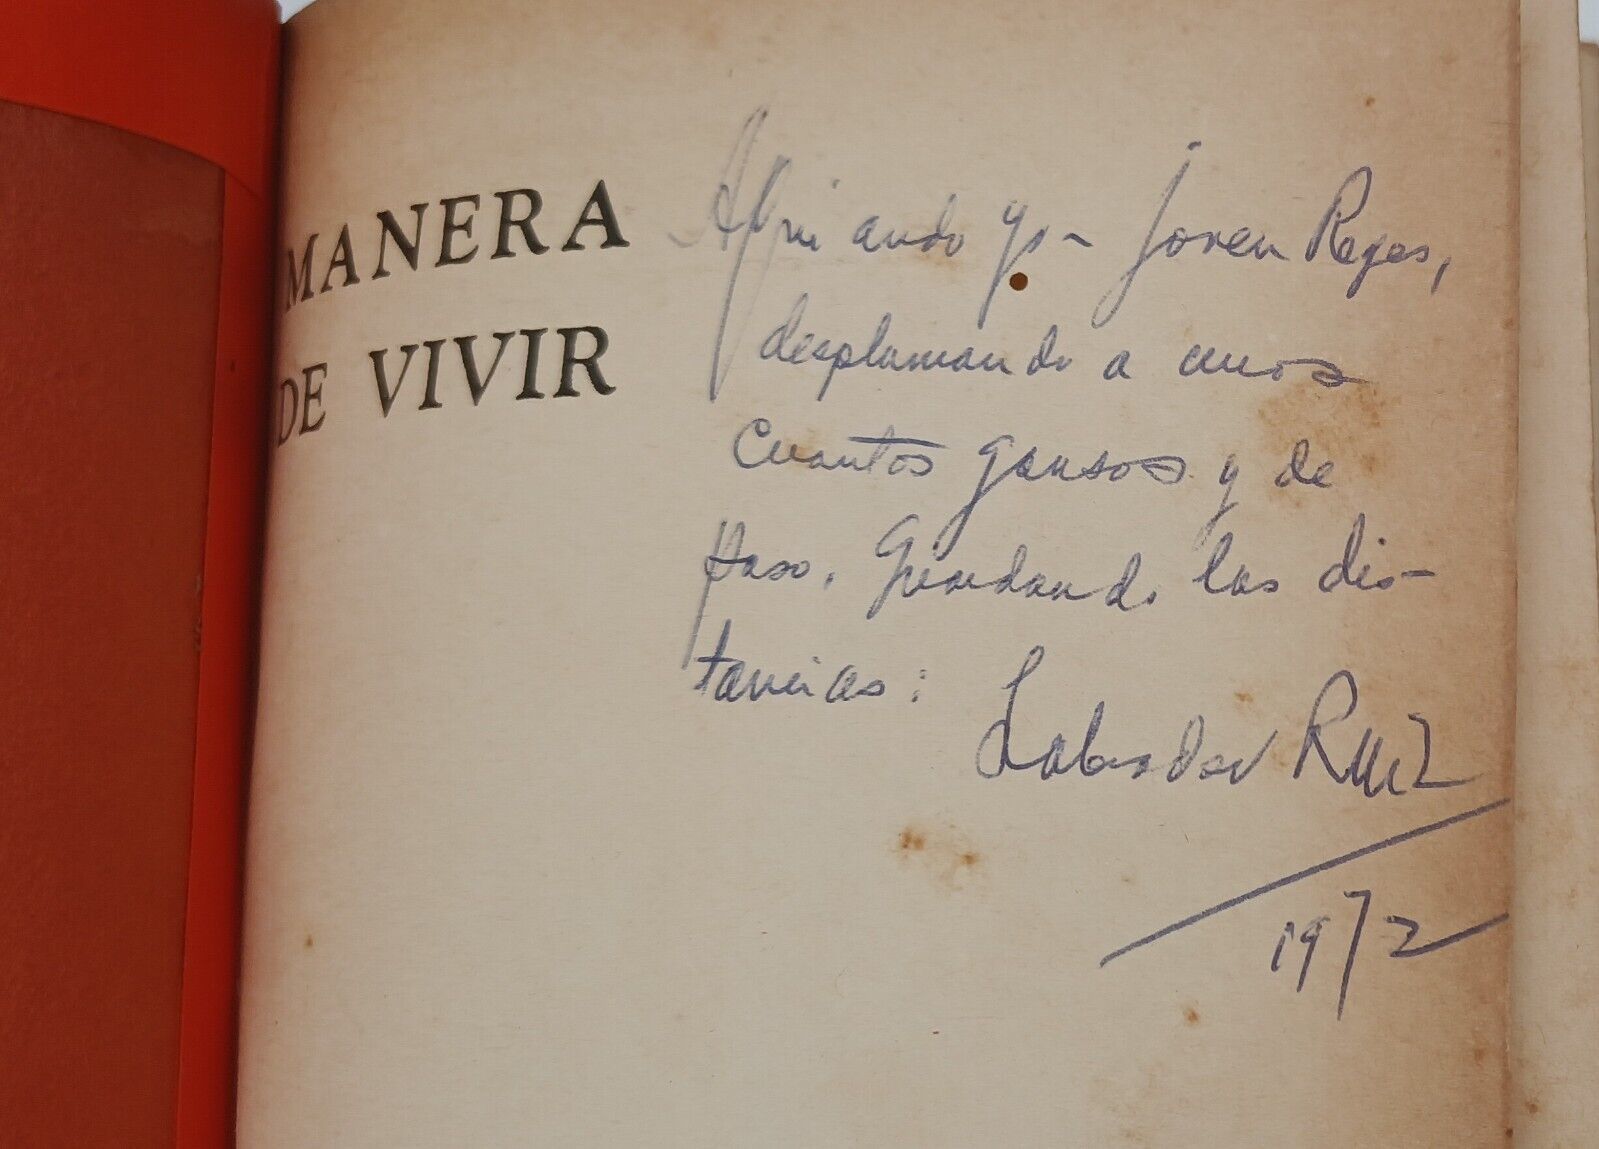 MANERA
DE VIVIR
yo - joven Reyes,
desplumando a unos
cuantos gansos y de
paso, guardando las dis-
tancias:
Labrador Ruiz
1972